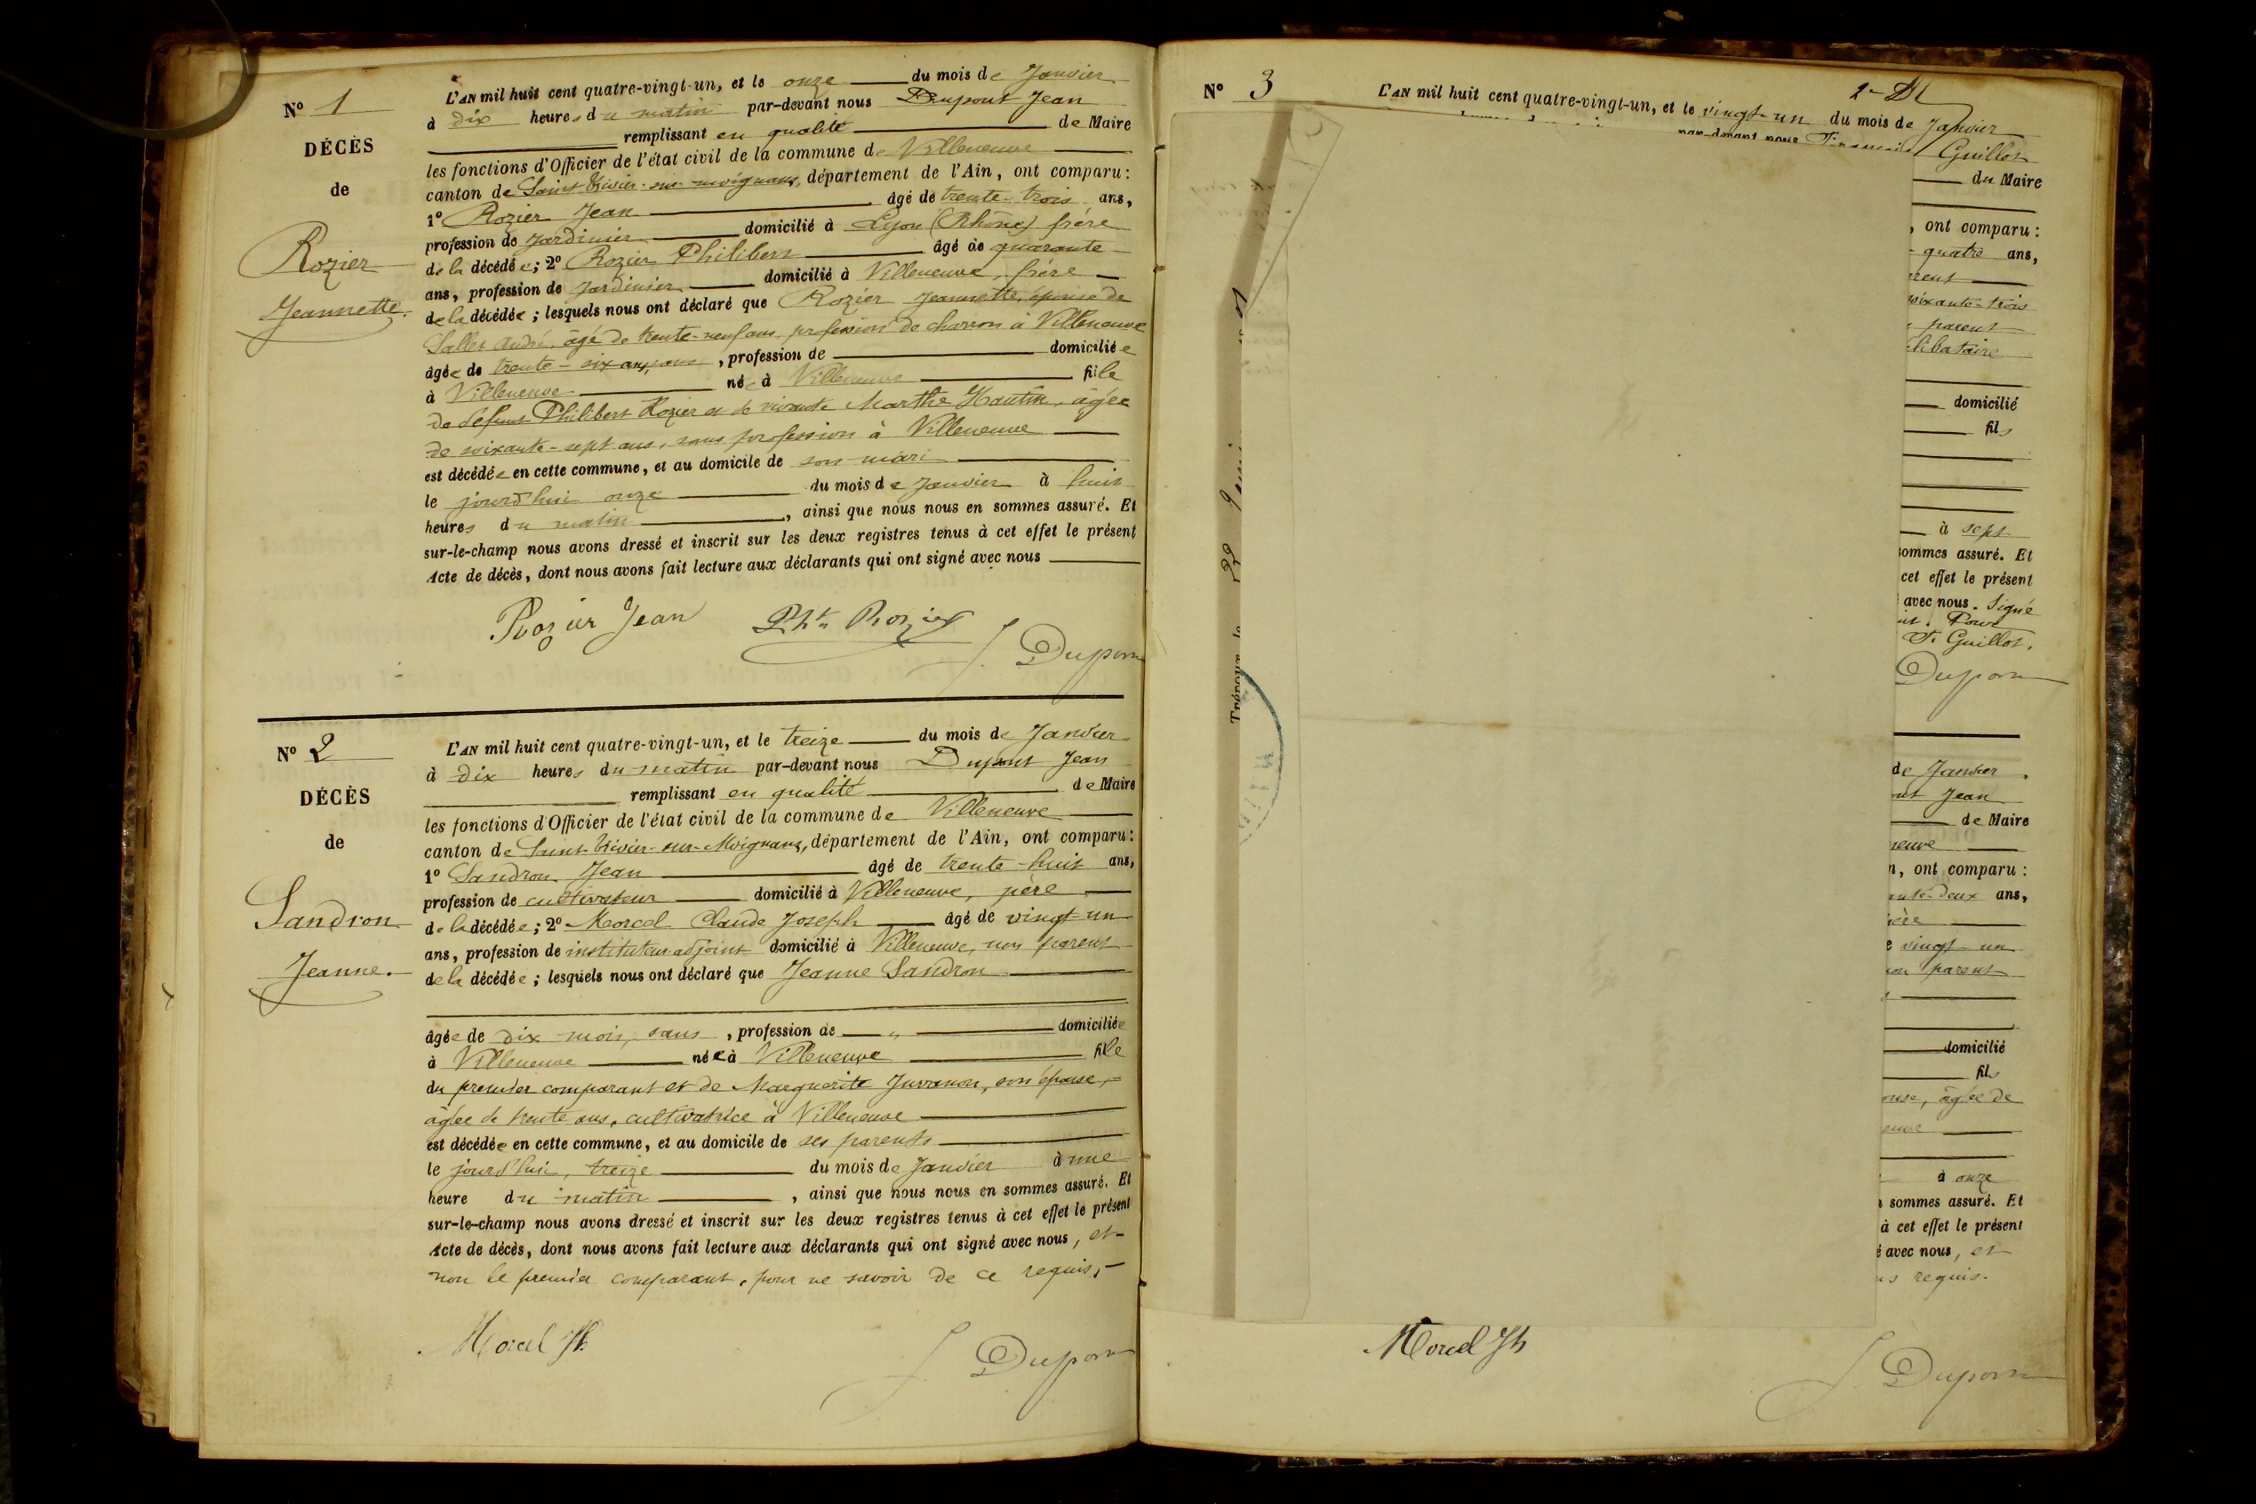 N° 1
DÉCÈS
de
Rozier
Jeannette.
L'AN mil huit cent quatre-vingt-un, et le onze du mois de Janvier
à dix heures du matin par-devant nous Dupont Jean
remplissant en qualité de Maire
les fonctions d'Officier de l'état civil de la commune de Villeneuve
canton de Saint Trivier-sur-moignans, département de l'Ain, ont comparu:
1° Rozier Jean âgé de trente-trois ans,
profession de Jardinier domicilié à Lyon (Rhône) frère
de la décédée; 2° Rozier Philibert âgé de quarante
ans, profession de Jardinier domicilié à Villeneuve, frère
de la décédée; lesquels nous ont déclaré que Rozier Jeannette, épouse de
Sallet André, âgé de trente-neuf ans, profession de charron à Villeneuve
âgée de trente-six ans, sans, profession de domiciliée
à Villeneuve née à Villeneuve fille
de défunt Philibert Rozier et de vivante Marthe Hautin, âgée
de soixante-sept ans, sans profession à Villeneuve
est décédée en cette commune, et au domicile de son mari
le jourd'hui onze du mois de Janvier à huit
heures du matin, ainsi que nous nous en sommes assuré. Et
sur-le-champ nous avons dressé et inscrit sur les deux registres tenus à cet effet le présent
Acte de décès, dont nous avons fait lecture aux déclarants qui ont signé avec nous
Rozier Jean Pht Rozier
J. Dupont
N° 2
DÉCÈS
de
Sandron
Jeanne.
L'AN mil huit cent quatre-vingt-un, et le treize du mois de Janvier
à dix heures du matin par-devant nous Dupont Jean
remplissant en qualité de Maire
les fonctions d'Officier de l'état civil de la commune de Villeneuve
canton de Saint-Trivier-sur-Moignans, département de l'Ain, ont comparu:
1° Sandron Jean âgé de trente-huit ans,
profession de cultivateur domicilié à Villeneuve, père
de la décédée; 2° Morcel Claude Joseph âgé de vingt-un
ans, profession de instituteur adjoint domicilié à Villeneuve, non parent
de la décédée; lesquels nous ont déclaré que Jeanne Sandron
âgée de dix mois, sans, profession de " domiciliée
à Villeneuve née à Villeneuve fille
du premier comparant et de Marguerite Juvanon, son épouse,
âgée de trente ans, cultivatrice à Villeneuve
est décédée en cette commune, et au domicile de ses parents
le jourd'hui, treize du mois de Janvier à une
heure du matin, ainsi que nous nous en sommes assuré. Et
sur-le-champ nous avons dressé et inscrit sur les deux registres tenus à cet effet le présent
Acte de décès, dont nous avons fait lecture aux déclarants qui ont signé avec nous, et
non le premier comparant, pour ne savoir de ce requis,
Morcel Jh
J. Dupont
N° 3
L'AN mil huit cent quatre-vingt-un, et le vingt-un du mois de Janvier
par-devant nous François Guillot
du Maire
, ont comparu:
quatre ans,
soixante-trois
parent
célibataire
domicilié
fils
à sept
sommes assuré. Et
cet effet le présent
avec nous. Signé
Pour
F. Guillot.
Dupont
de Janvier.
Jean
de Maire
n, ont comparu:
deux ans,
vingt-un
non parent
domicilié
fils
âgée de
à onze
sommes assuré. Et
à cet effet le présent
é avec nous, et
requis.
Morcel Jh
J. Dupont